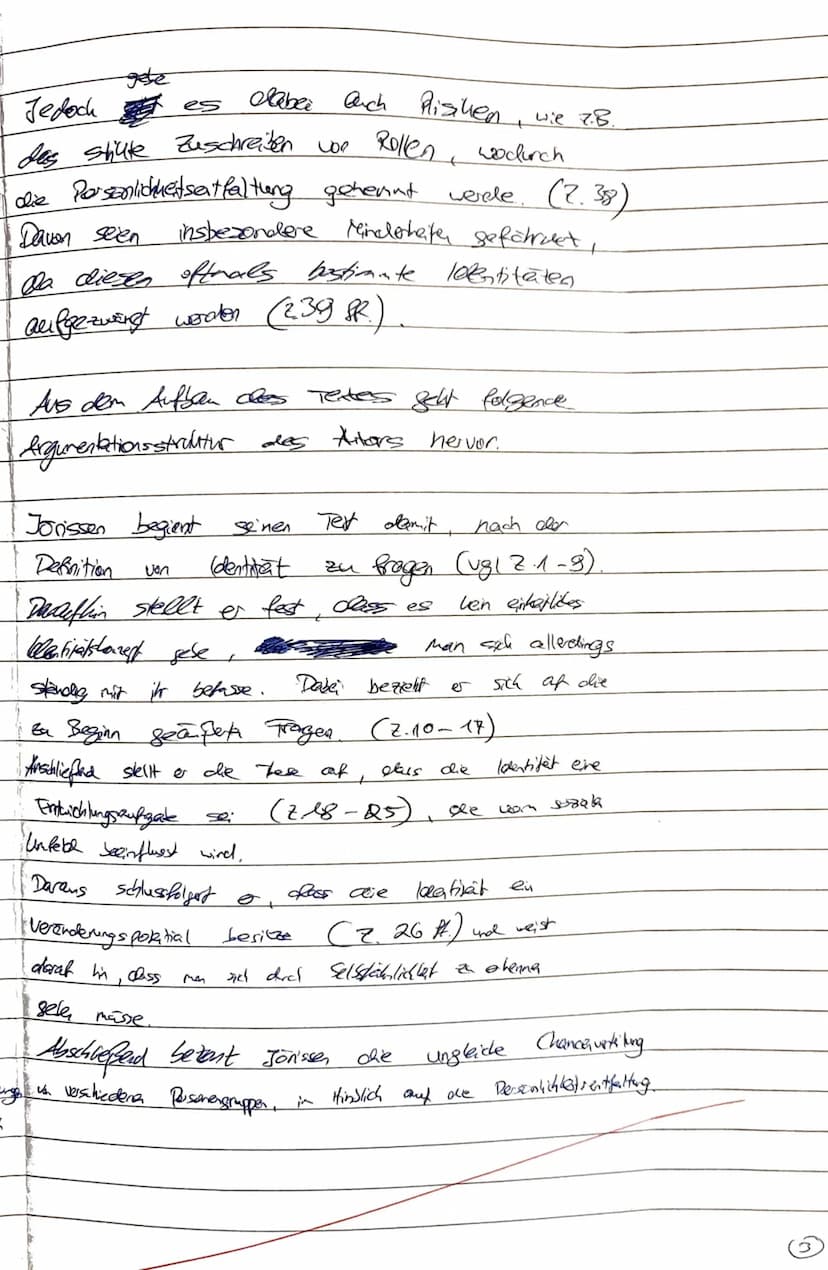 gebe
Jedoch es dabei auch Risiken, wie z.B.
das strikte Zuschreiben von Rollen, wodurch
die Persönlichkeitsentfaltung gehemmt werde. (Z. 38)
Davon seien insbesondere Minderheiten gefährdet,
da diesen oftmals bestimmte Identitäten
aufgezwängt werden (Z 39 ff.).
Aus dem Aufbau des Textes geht folgende
Argumentationsstruktur des Autors hervor.
Jörissen beginnt seinen Text damit, nach der
Definition von Identität zu fragen (vgl Z. 1-9).
Daraufhin stellt er fest, dass es kein einheitliches
Identitätskonzept gebe, man sich allerdings
ständig mit ihr befasse. Dabei bezieht er sich auf die
zu Beginn geäußerten Fragen. (Z. 10-17)
Anschließend stellt er die These auf, dass die Identität eine
Entwicklungsaufgabe sei (Z 18-25), die vom sozialen
Umfeld beeinflusst wird.
Daraus schlussfolgert er, dass die Identität ein
Veränderungspotential besitze (Z. 26 ff.) und weist
darauf hin, dass man sich durch Selbstähnlichkeit zu erkennen
geben müsse.
Abschließend betont Jörissen die ungleiche Chancenverteilung
verschiedenen Personengruppen, in Hinblick auf die Persönlichkeitsentfaltung.
3